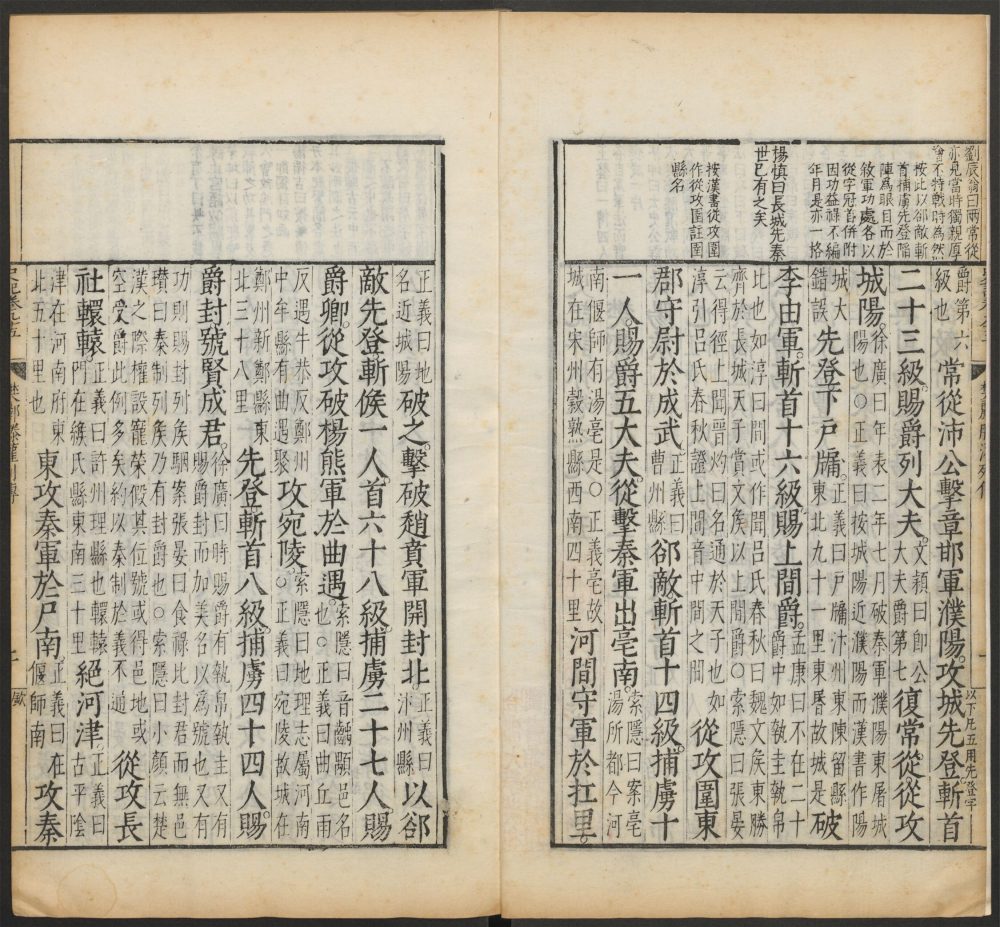 劉辰翁曰兩常從
亦見當時獨親厚
噲不特戰時為然
按此以郤敵斬
首捕虜先登陷
陣為眼目而於
敘軍功處各以
從字冠首併附
因功益祿不編
年月是亦一格
楊慎曰長城先秦
世已有之矣
按漢書從攻圍
作從攻圉註圉
縣名
爵第六級也常從沛公擊章邯軍濮陽攻城先登斬首
以下凡五用先登字
二十三級賜爵列大夫文穎曰即公大夫爵第七復常從從攻
城陽徐廣曰年表二年七月破秦軍濮陽東屠城陽也○正義曰按城陽近濮陽而漢書作陽
城大錯誤先登下戶牖正義曰戶牖汴州東陳留縣東北九十一里東昬故城是破
李由軍斬首十六級賜上間爵孟康曰不在二十爵中如執圭執帛
比也如淳曰間或作聞呂氏春秋曰魏文侯東勝齊於長城天子賞文侯以上聞爵○索隱曰張晏
云得徑上聞晉灼曰名通於天子也如淳引呂氏春秋證上聞音中間之間從攻圍東
郡守尉於成武正義曰曹州縣郤敵斬首十四級捕虜十
一人賜爵五大夫從擊秦軍出亳南索隱曰案亳湯所都今河
南偃師有湯亳是○正義亳故城在宋州榖熟縣西南四十里河間守軍於扛里
正義曰地名近城陽破之擊破趙賁軍開封北正義曰汴州縣以郤
敵先登斬候一人首六十八級捕虜二十七人賜
爵卿從攻破楊熊軍於曲遇索隱曰音齲顒邑名也○正義曰曲丘雨
反遇牛恭反鄭州中牟縣有曲遇聚攻宛陵索隱曰地理志屬河南○正義曰宛陵故城在
鄭州新鄭縣東北三十八里先登斬首八級捕虜四十四人賜
爵封號賢成君徐廣曰時賜爵有執帛執圭又有賜爵封而加美名以為號也又有
功則賜封列侯駰案張晏曰食祿比封君而無邑瓚曰秦制列侯乃有封爵也○索隱曰小顏云楚
漢之際權設寵榮假其位號或得邑地或空受爵此例多矣約以秦制於義不通從攻長
社轘轅正義曰許州理縣也轘轅門在緱氏縣東南三十里絕河津正義曰古平陰
津在河南府東北五十里也東攻秦軍於尸南正義曰在偃師南攻秦